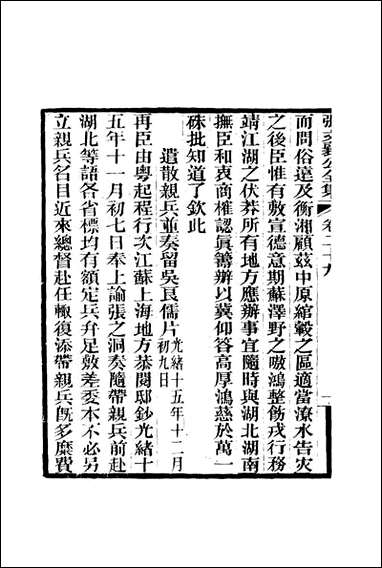 張文襄公全集 卷二十九 一
而問俗遠及衡湘顧茲中原綰轂之區適當潦水告災
之後臣惟有敷宣德意期蘇澤野之嗷鴻整飭戎行務
靖江湖之伏莽所有地方應辦事宜隨時與湖北湖南
撫臣和衷商榷認眞籌辦以冀仰答高厚鴻慈於萬一
硃批知道了欽此
遣散親兵並奏留吳良儒片 光緒十五年十二月初九日
再臣由粵起程行次江蘇上海地方恭閱邸鈔光緒十
五年十一月初七日奉上諭張之洞奏隨帶親兵前赴
湖北等語各省督標均有額定兵弁足敷差委本不必另
立親兵名目近來總督赴任輒復添帶親兵旣多糜費